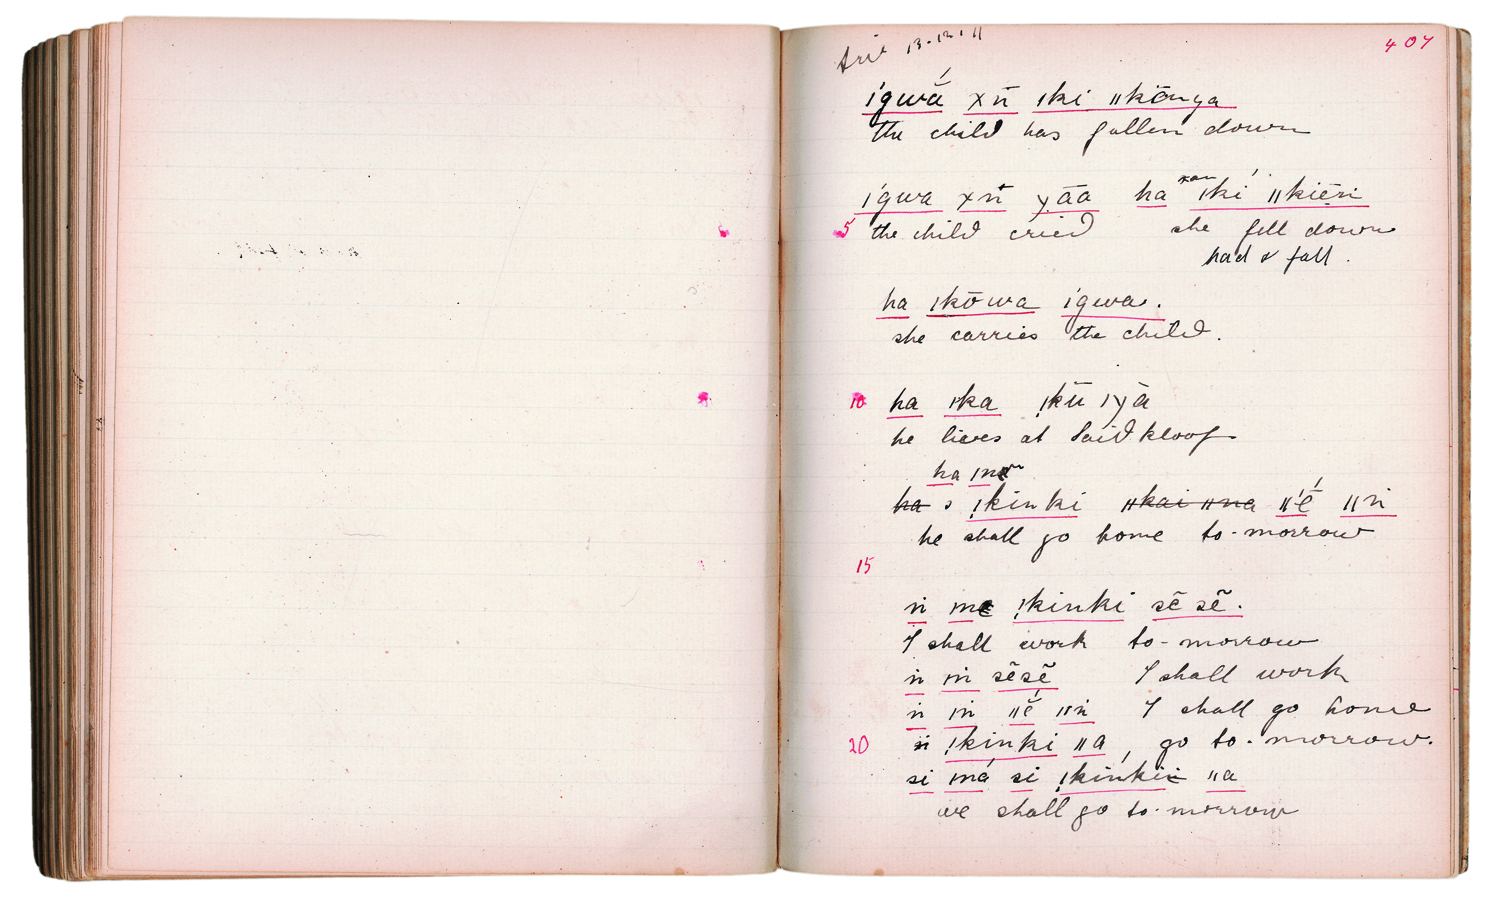 13.12.11
407
ígwā́ xń ǀki ǁkōnya
the child has fallen down
ígwa xń yāa ha xau ǀkí ǁkiēri
5 the child cried she fell down
had a fall.
ha ǀkōwa ígwa.
she carries the child.
10 ha ǀka ǃkū ǀyā
he lives at Saidkloof
ha ǀne
ha s ǃkinki ǁkai ǁna ǁé ǁǹ
he shall go home to-morrow
15
ǹ ǀne ǃkinki sē sē̃.
I shall work to-morrow
ǹ ǀǹ sēsē I shall work
ǹ ǀǹ ǁé ǁǹ I shall go home
20 ǹ ǃkinki ǁa, go to-morrow.
si ǀná si ǃkinki ǁa
we shall go to-morrow